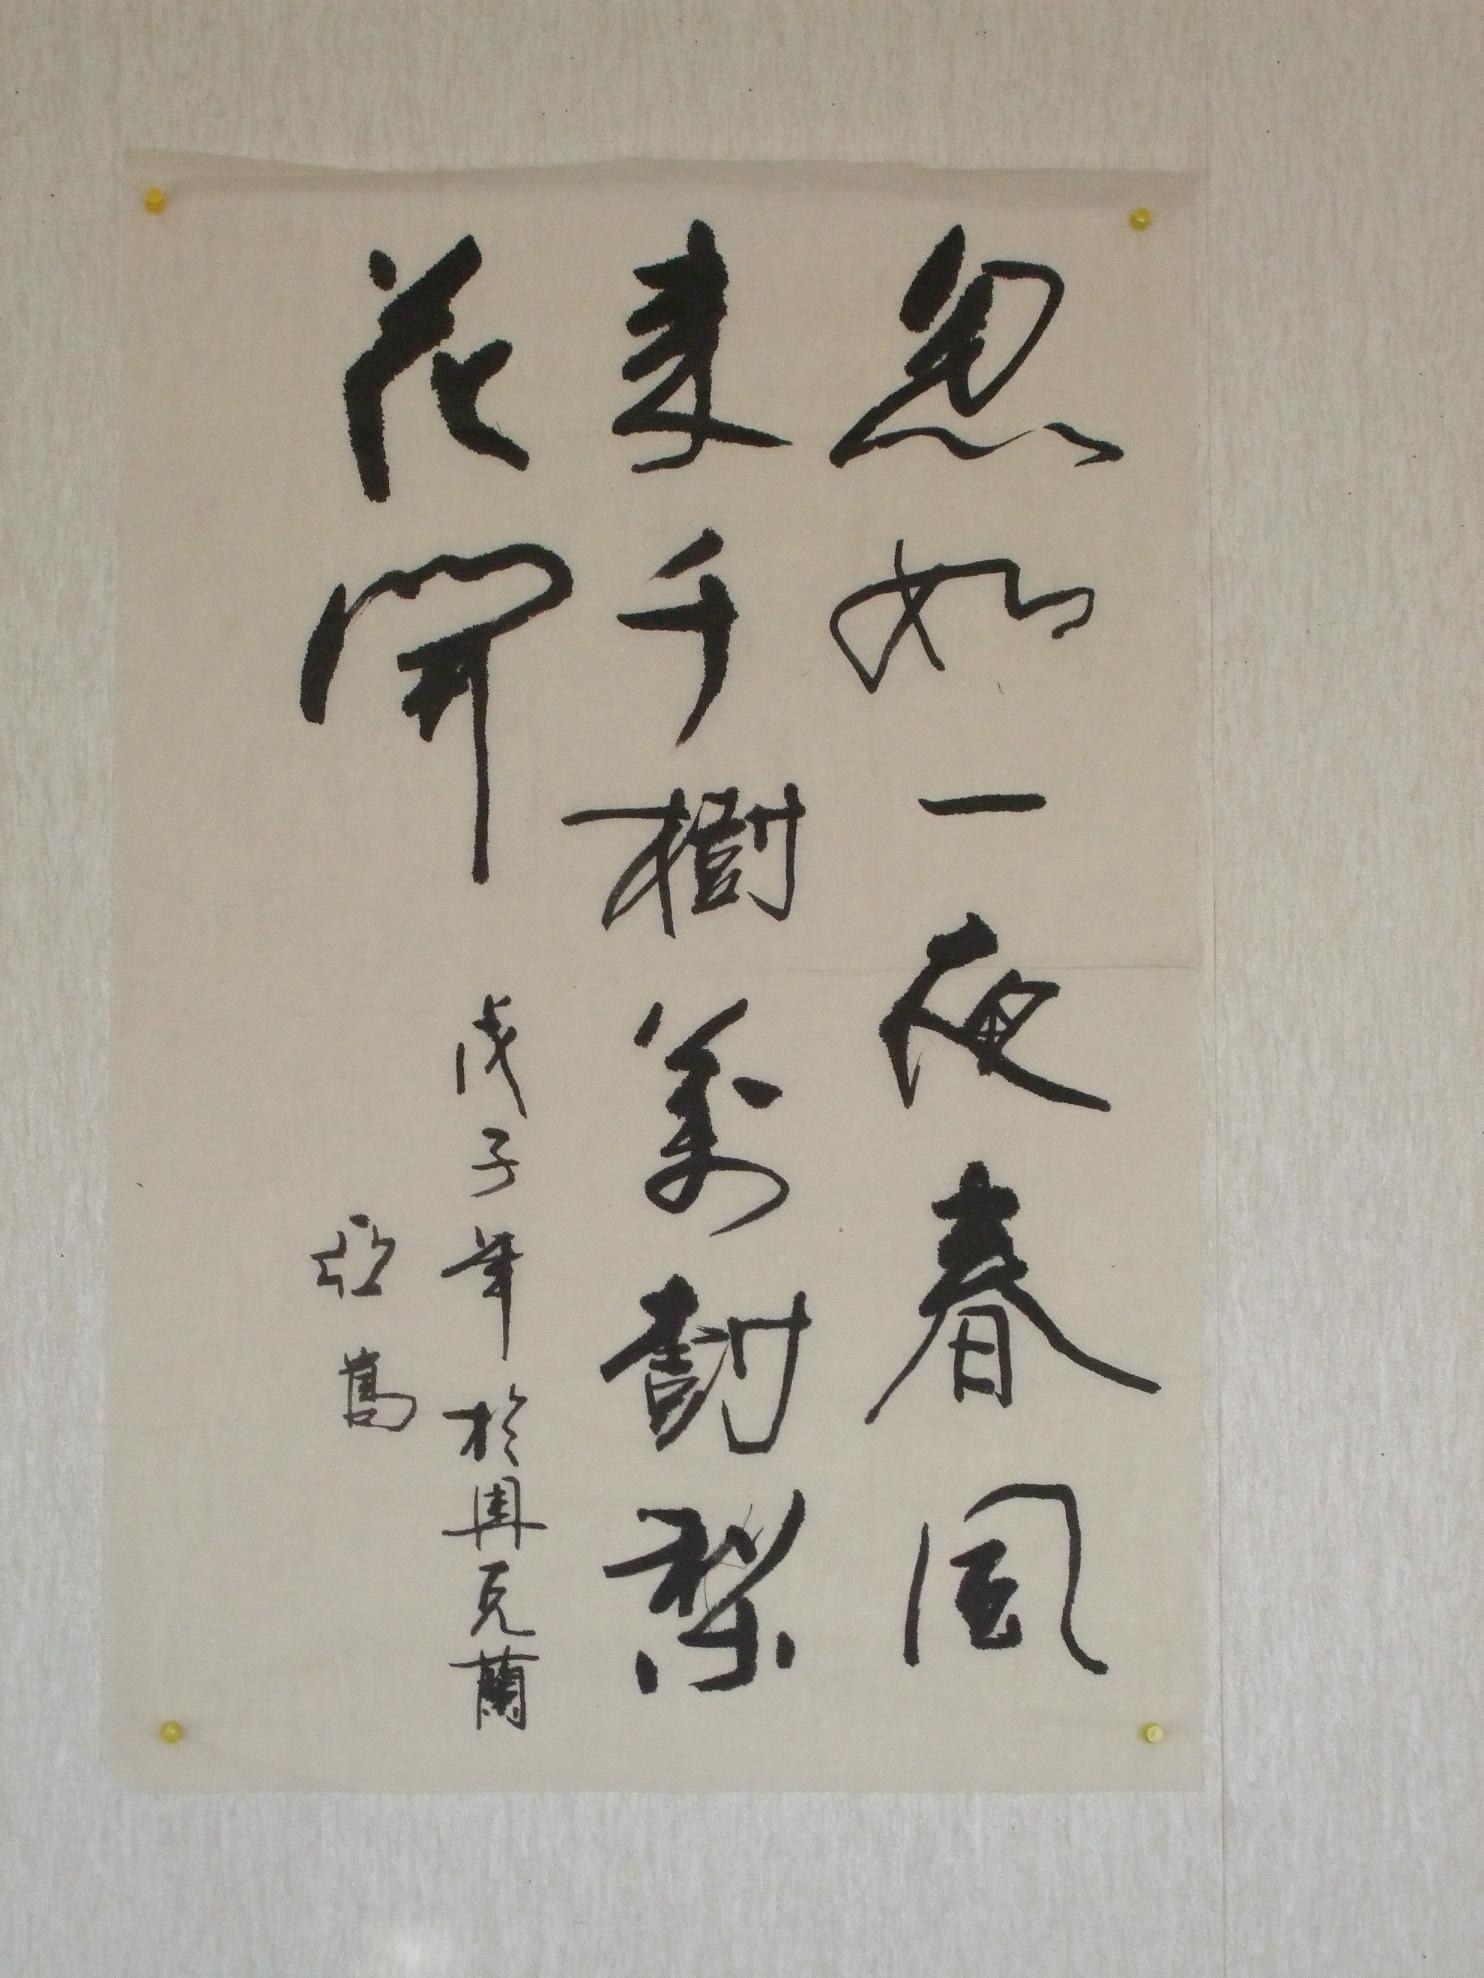 忽如一夜春风
来千樹萬樹梨
花開
戊子年於奥克蘭
亞嵩